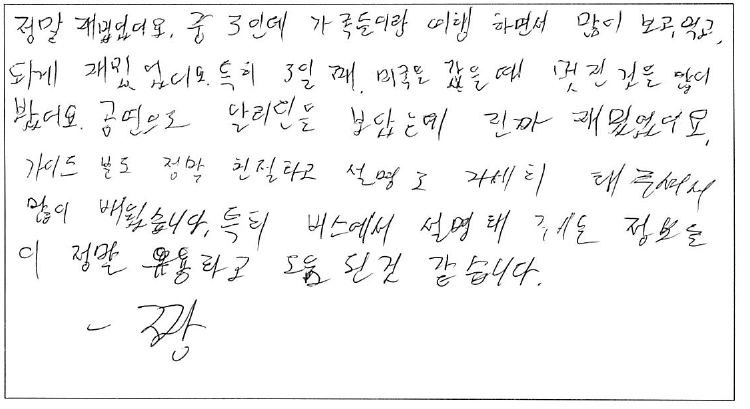 정말 재밌었어요. 중3인데 가족들이랑 여행 하면서 많이 보고, 먹고,
되게 재밌었어요. 특히 3일 째, 미국으로 갔을 때 멋진 것을 많이
봤어요. 공연으로 달리언들 보았는데 진짜 재밌었어요.
가이드 분도 정말 친절하고 설명도 자세히 해주셔서
많이 배웠습니다. 특히 버스에서 설명해 주는 정보들
이 정말 유용하고 도움 된것 같습니다.
- 짱